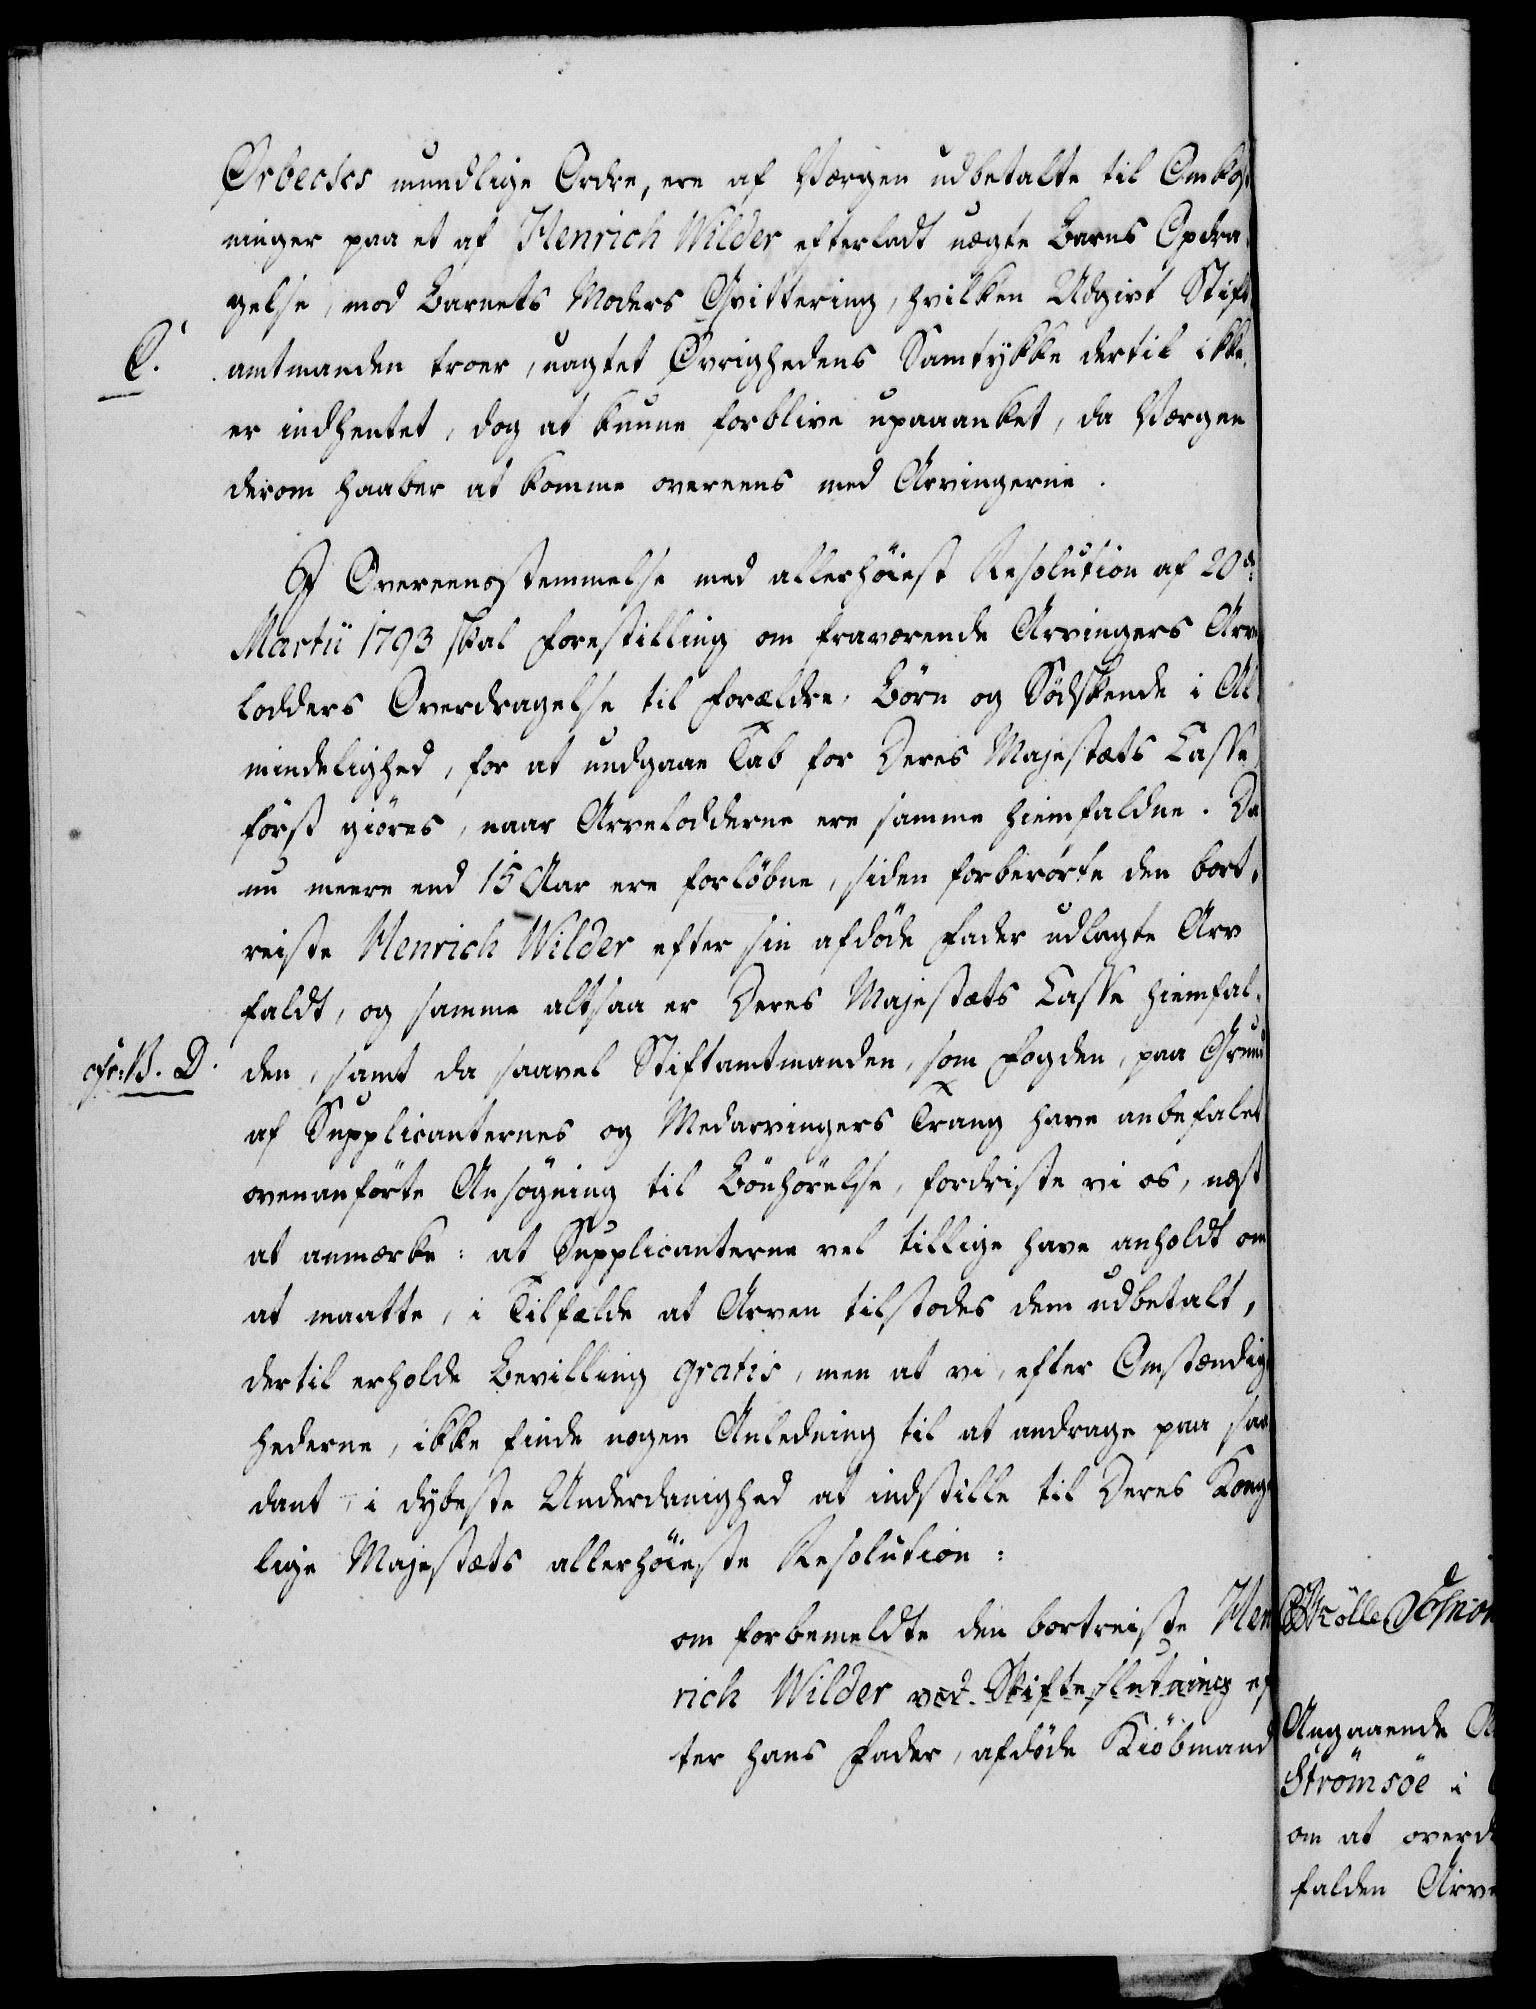 Ørbecks mundlige Ordre, ere af Værgen udbetalte til Omkost
ninger paa et af Henrich Wilder efterladt uægte Barns Opdra
gelse, mod Barnets Moders Qvittering, hvilken Udgivt Stift
C.
amtmanden troer, uagtet Øvrighedens Samtykke dertil ikke
er indhentet, dog at kunne forblive upaaanket, da Værgen
derom haaber at komme overeens med Arvingerne.
I Overeensstemmelse med allerhöiest Resolution af 20de
Martii 1793 skal Forestilling om fraværende Arvingers Arve
lodders Overdragelse til Forældre, Börn og Södskende i Al
mindelighed, for at undgaae Tab for Deres Majestæts Casse
först giöres, naar Arvelodderne ere samme hiemfaldne. Da
nu meere end 15 Aar ere forløbne, siden forberörte den bort,
reiste Henrich Wilder efter sin afdöde Fader udlagte Arv
faldt, og samme altsaa er Deres Majestæts Casse hiemfal,
cfr: B. D.
den, samt da saavel Stiftamtmanden, som Fogden, paa Grund
af Supplicanternes og Medarvingers Trang have anbefalet
ovenanförte Ansögning til Bönhörelse, fordriste vi os, næst
at anmærke: at Supplicanterne vel tillige have anholdt om
at maatte, i Tilfælde at Arven tilstodes dem udbetalt,
dertil erholde Bevilling gratis, men at vi, efter Omstændig
hederne, ikke finde nogen Anledning til at andrage paa saa
dant, i dybeste Underdanighed at indstille til Deres Konge
lige Majestæts allerhöieste Resolution:
om forbemeldte den bortreiste Hen
rich Wilder ved Skifteslutning ef
ter hans Fader, afdöde Kiöbmand
Angaaende
Strömsöe i
om at overd
falden Arve